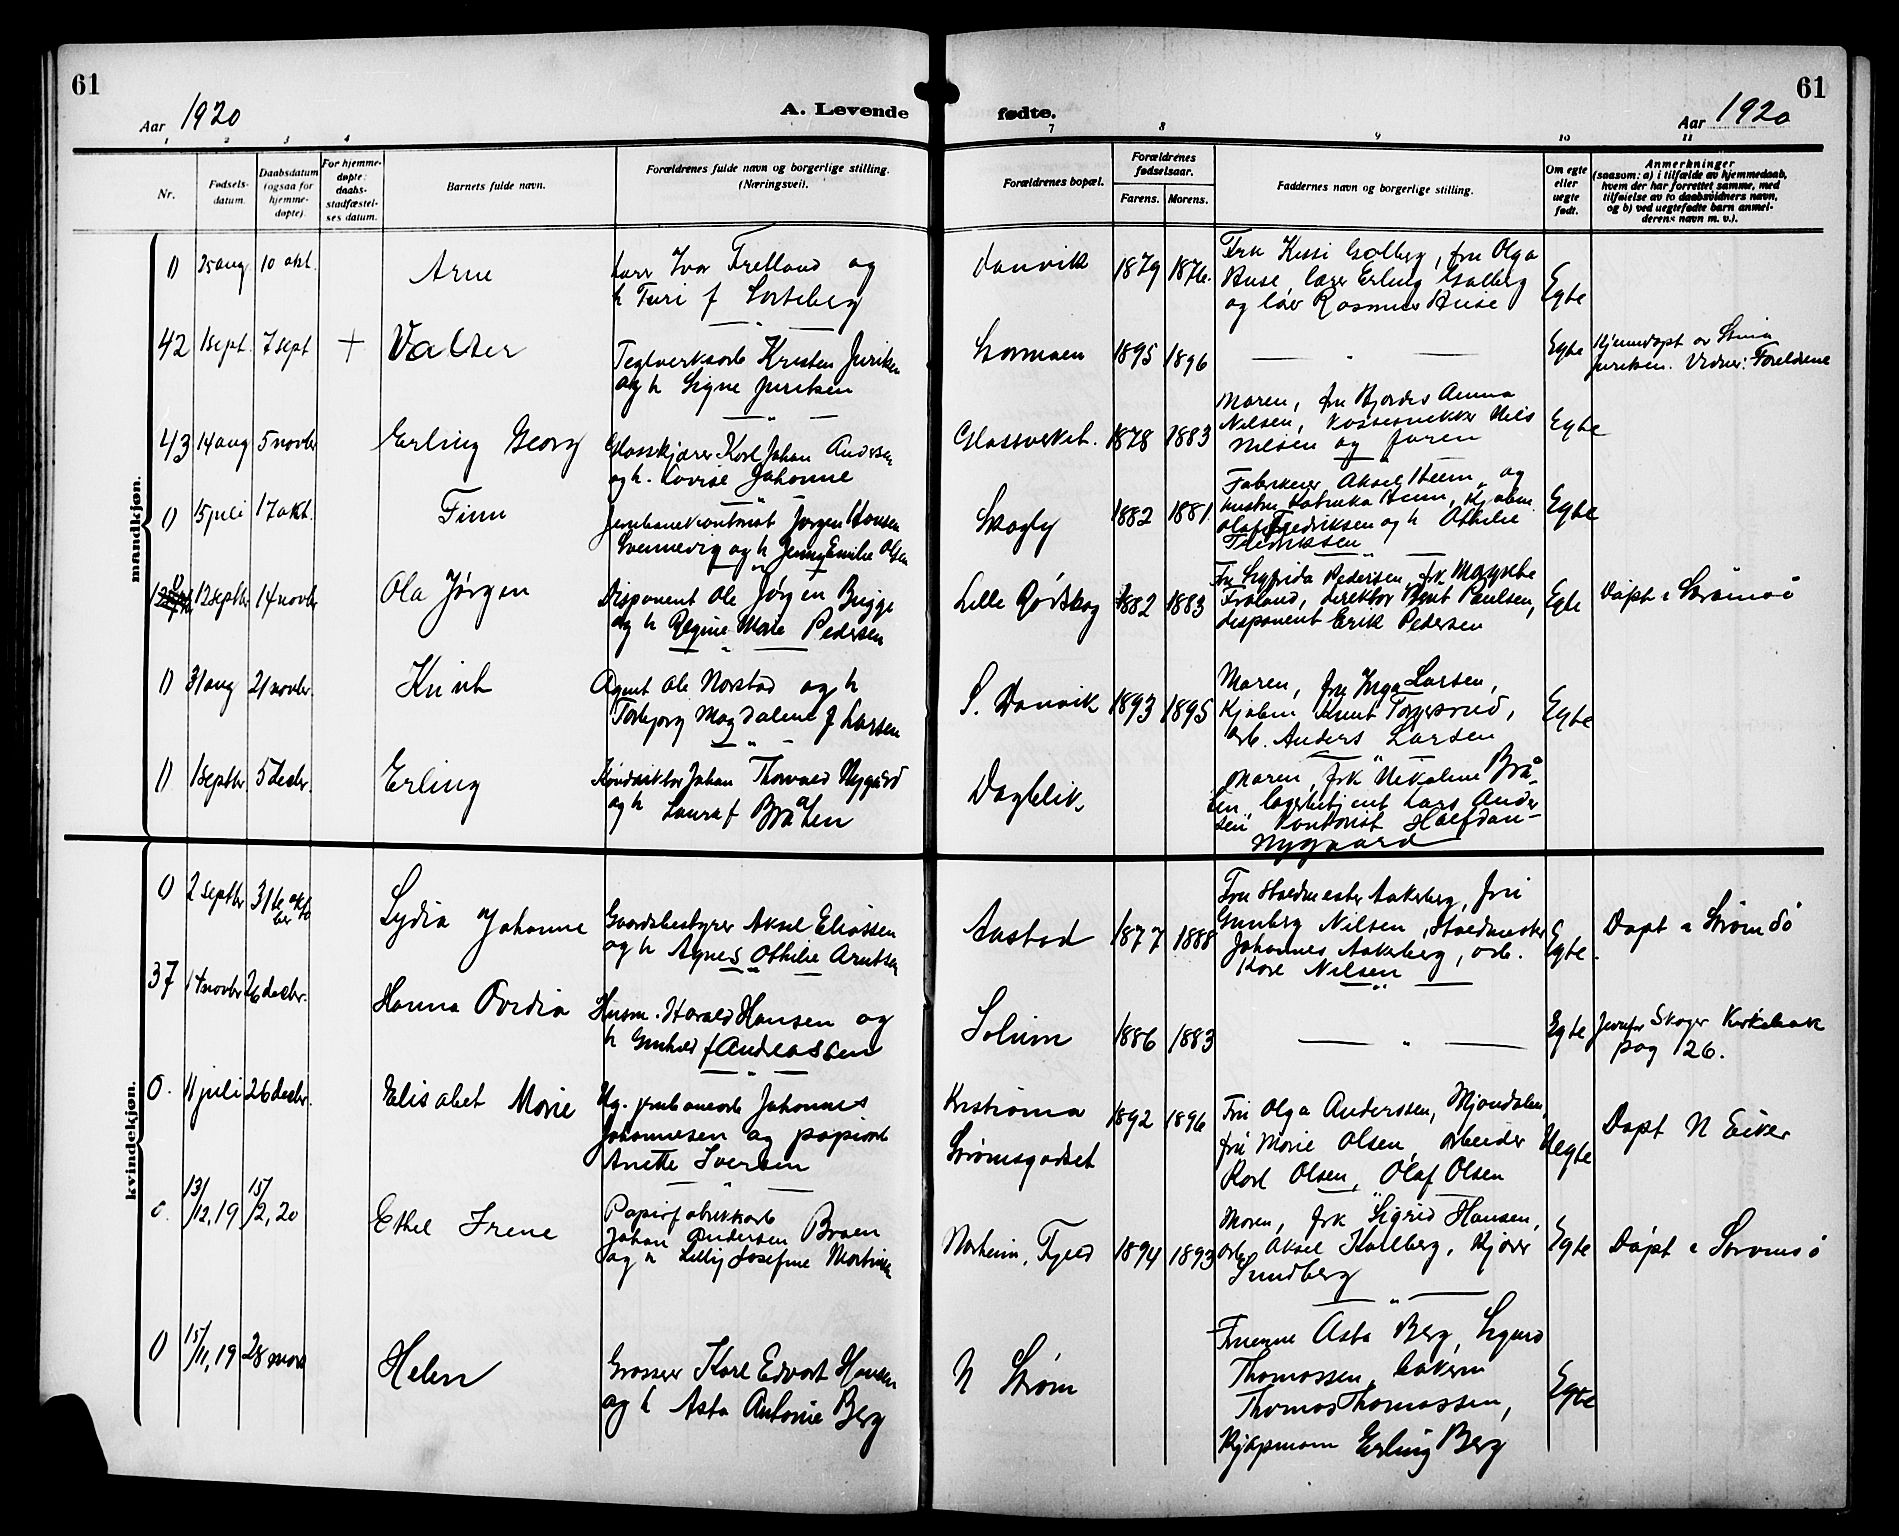 61
Aar 1920
A. Levende
fødte.
Aar 1920
61
1 2 3 4
7 8 9 10 11
Nr.
Fødsels-
datum.
Daabsdatum
(ogsaa for
hjemme-
døpte).
For hjemme-
døpte:
daabs-
stadfæstel-
ses datum.
Barnets fulde navn.
Forældrenes fulde navn og borgerlige stilling.
(Næringsveil.
Forældrenes bopæl.
Forældrenes
fødselsaar.
Farens. Morens.
Faddernes navn og borgerlige stilling.
Om egte
eller
uegte
født.
Anmerkninger
(saasom: a) i tilfælde av hjemmedaab,
hvem der har forrettet samme, med
tilføielse av to daabsvidners navn,
og b) ved uegtefødte barn anmel-
derens navn m. v.).
mandkjøn.
0 25 aug 10 okt. Arne
Ivar Fretland og
h Turi f Lorteberg
Danvik 1879 1876.
Frk Kissi Golberg, fru Olga
Huse, lærer Erling Golberg
og lær Rasmus Huse
Egte
42 1 sept. 7 sept + Valter
Teglverksarb Kristen Juriksen
og h Signe Juriksen
1895 1896
Egte
Hjemmedøpt av Stina
Juriksen. Vidner: Foreldrene
43 14 aug 5 novbr Erling Georg
Glasskjærer Karl Johan Andersen
og h. Lovise Johanne
Glassverket. 1878 1883
Moren, fru Hjordis Anna
Nilsen, Nils
Nilsen og faren
Egte
0 15 juli 17 okt. Finn
Jernbanekontorist Jørgen Hansen
Svennevig og h Jenny Emilie Olsen
Skogly 1882 1881.
Fabrikeier Aksel Heem og
hustru Heem, kjøbm.
Olaf Fredriksen og h Othilie
Fredriksen
Egte
0 12 septbr 14 novbr Ola Jørgen
Disponent Ole Jørgen Brigge
og h Regine Marie Pedersen
Lille Rødskog 1882 1883
Fru Sigfrida Pedersen, frk Margrethe
Froland, direktør Bent Paulsen,
disponent Erik Pedersen
Egte
Døpt i Strømsø
0 31 aug 21 novbr. Knut
Agent Ole Norstad og h
Torbjørg Magdalene f Larsen
S. Danvik 1893 1895
Moren, fru Inga Larsen,
Kjøbm Knut Torgersrud,
arb. Anders Larsen
Egte
0 1 septbr 5 decbr. Erling
Konduktør Johan Thorvald Nygård
og h Laura f Bråten
Dagblik
Moren, frk Nikoline Brå-
ten, lagerbetjent Lars Ander
sen, kontorist Halfdan
Nygaard
kvindekjøn.
0 2 septbr 31te okto
ber
Lydia Johanne
Gaardsbestyrer Aksel Eliassen
og h Agnes Othilie Arntsen
Aastad 1877 1888
Fru Stadmester Aakerberg, fru
Gunberg Nilsen, Stadmester
Johannes Aakerberg, arb.
Karl Nilsen
Egte.
Døpt i Strømsø
37 14 novbr 26 decbr. Hanna Ovidia
Husm. Harald Hansen og
h Gunhild f Andreassen
Solum 1886 1883
Egte
Jevnfør Skoger Kirkebok
pag 126.
0. 11 juli 26 decbr. Elisabet Marie
Ug. jernbanearb Johannes
Johannesen og papirarb
Anette Iversen
Kristiania
Strømsgodset
1892 1896
Fru Olga Anderssen, Mjøndalen,
fru Marie Olsen, arbeider
Karl Olsen, Olaf Olsen
Uegte
Døpt N Eiker
0. 13/12, 19 15/2, 20 Ethel Irene
Papirfabrikkarb
Johan Andersen Braen
og h Lilly Josefine Martinsen
Norheim, Fjeld 1894 1893
Moren, frk Sigrid Hansen,
arb Aksel Kallberg, kjører
Sundberg
Egte
Døpt i Strømsø
0 15/11, 19 28 mars Helen
Grosserer Karl Edvart Hansen
og h Asta Antonie Berg
N Strøm
Fruerne Asta Berg, Signe
Thomassen, bakerm
Thomas Thomassen,
Kjøpmann Erling Berg
Egte